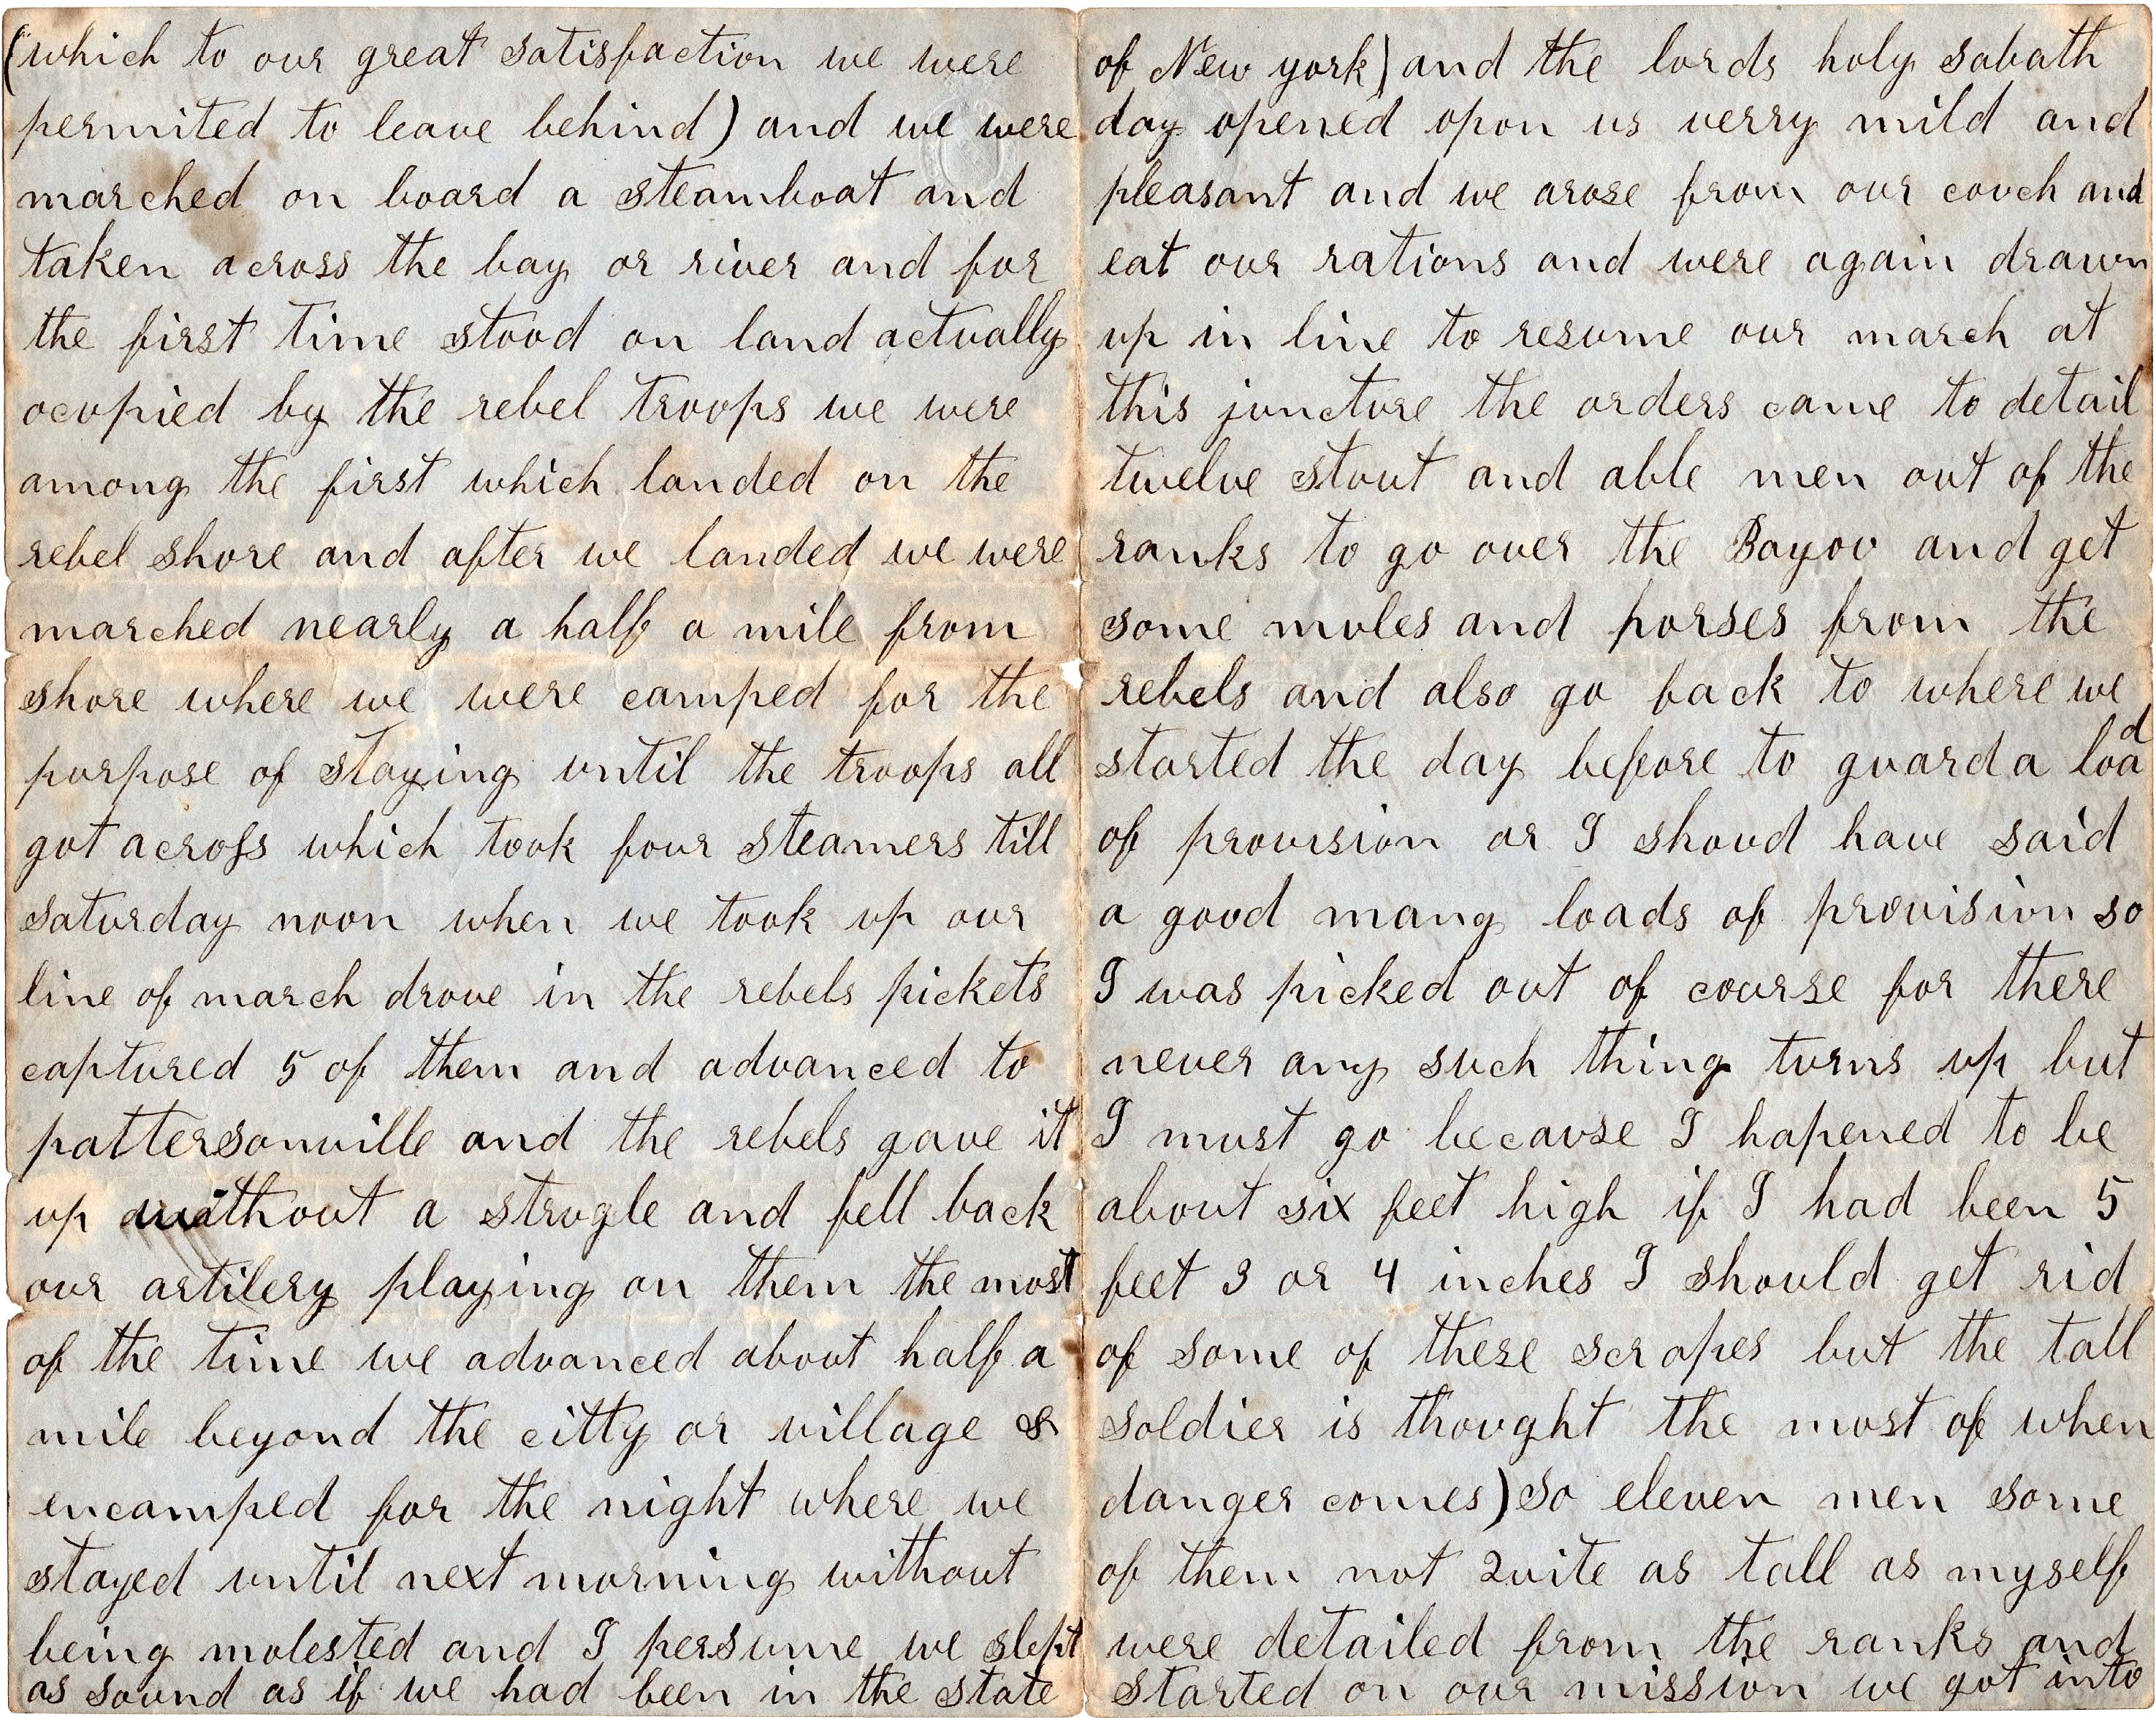 (which to our great satisfaction we were
permited to leave behind) and we were
marched on board a steamboat and
taken across the bay or river and for
the first time stood on land actually
ocupied by the rebel troops we were
among the first which landed on the
rebel shore and after we landed we were
marched nearly a half a mile from
shore where we were camped for the
purpose of staying until the troops all
got across which took four steamers till
saturday noon when we took up our
line of march drove in the rebels pickets
captured 5 of them and advanced to
pattersonville and the rebels gave it
up without a strugle and fell back
our artilery playing on them the most
of the time we advanced about half a
mile beyond the citty or village &
encamped for the night where we
stayed until next morning without
being molested and I persume we slept
as sound as if we had been in the state
of New york) and the lords holy sabath
day opened opon us verry mild and
pleasant and we arose from our couch and
eat our rations and were again drawn
up in line to resume our march at
this juncture the orders came to detail
twelve stout and able men out of the
ranks to go over the Bayou and get
some mules and horses from the
rebels and also go back to where we
started the day before to guard a load
of provision or I shoud have said
a good many loads of provision so
I was picked out of course for there
never any such thing turns up but
I must go because I hapened to be
about six feet high if I had been 5
feet 3 or 4 inches I should get rid
of some of these scrapes but the tall
soldier is thought the most of when
danger comes) So eleven men some
of them not quite as tall as myself
were detailed from the ranks and
started on our mission we got into